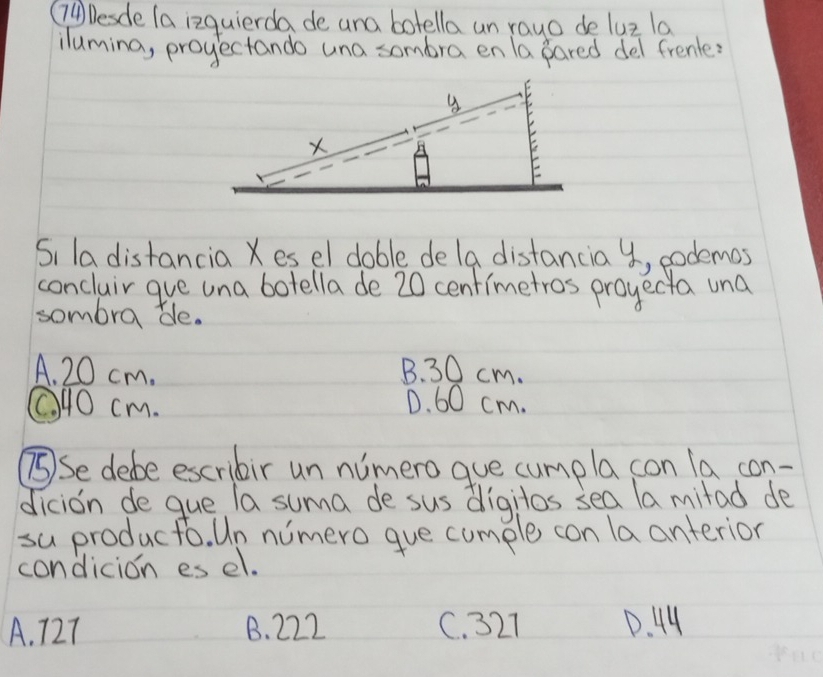 74) Desde la izquierda de una botella un rayo de luz la
ilumina, proyectando una sombra en la pared del frente:
y
x
Si la distancia X es el doble de la distancia Y, podemos
concluir que una botella de 20 centímetros proyecta una
sombra de.
A. 20 cm. B. 30 cm.
C. 40 cm. D. 60 cm.
75) Se debe escribir un número que cumpla con la con-
dición de que la suma de sus dígitos sea la mitad de
su producto. Un número que cumple con la anterior
condición es el.
A. 121 B. 222 C. 321 D. 44